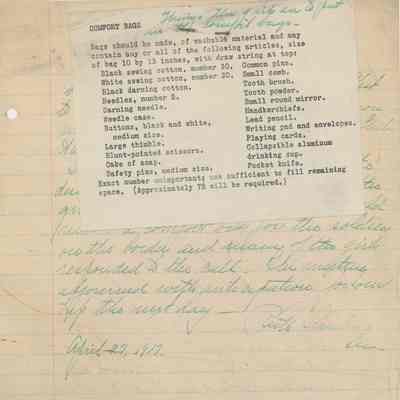 Things the girls are to put
in the comfort bags.
COMFORT BAGS
Bags should be made, of washable material and may
contain any or all of the following articles, size
of bag 10 by 13 inches, with draw string at top:
Black sewing cotton, number 30. Common pins.
White sewing cotton, number 30. Small comb.
Black darning cotton. Tooth brush.
Needles, number 5. Tooth powder.
Darning needle. Small round mirror.
Needle case. Handkerchiefs.
Buttons, black and white, Lead pencil.
medium size. Writing pad and envelopes.
Large thimble. Playing cards.
Blunt-pointed scissors. Collapsible aluminum
Cake of soap. drinking cup.
Safety pins, medium size. Pocket knife.
Exact number unimportant; use sufficient to fill remaining
space. (Approximately 75 will be required.)
a comfort bag for the soldiers
on the border and many of the girls
responded to the call. The meeting
adjourned with anticipation
the next day
April 27, 1917.